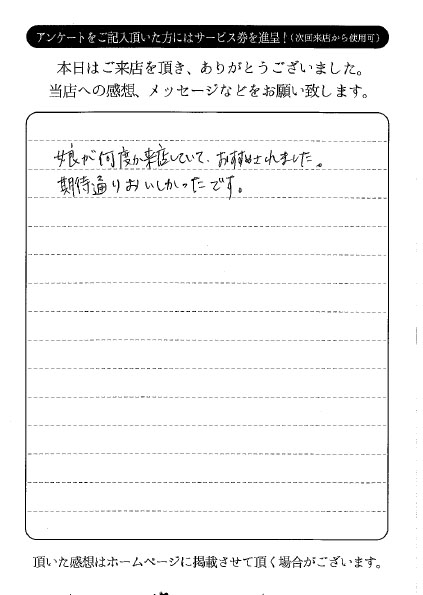 アンケートをご記入頂いた方にはサービス券を進呈!(次回来店から使用可)
本日はご来店を頂き、ありがとうございました。
当店への感想、メッセージなどをお願い致します。
娘が何度か来店していて、おすすめされました。
期待通りおいしかったです。
頂いた感想はホームページに掲載させて頂く場合がございます。